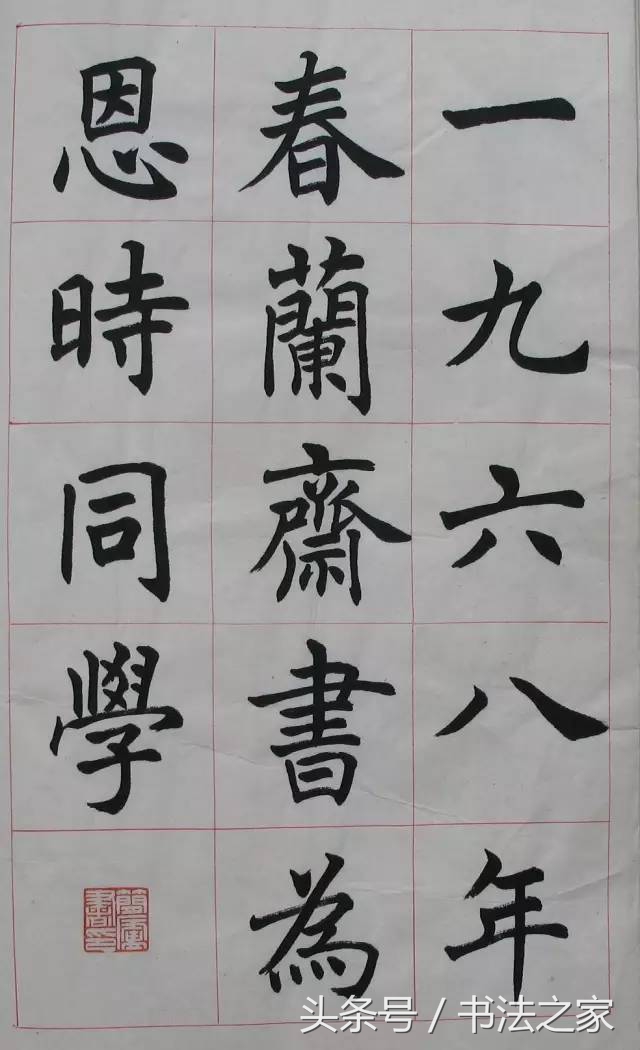 一九六八年
春蘭齋書為
恩時同學
头条号 / 书法之家